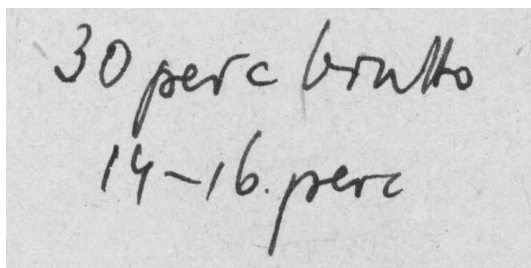 30 perc bruttó
14-16. perc